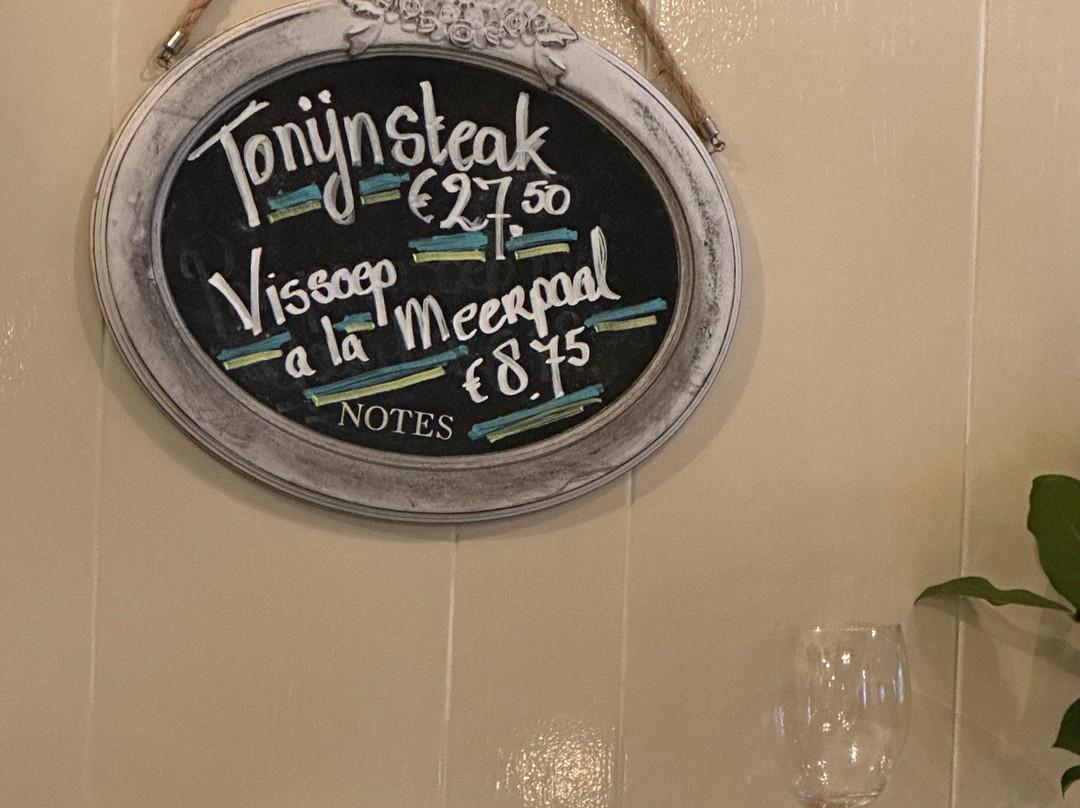 Tonijnsteak
€27.50
Vissoep
a la Meerpaal
€8.75
NOTES